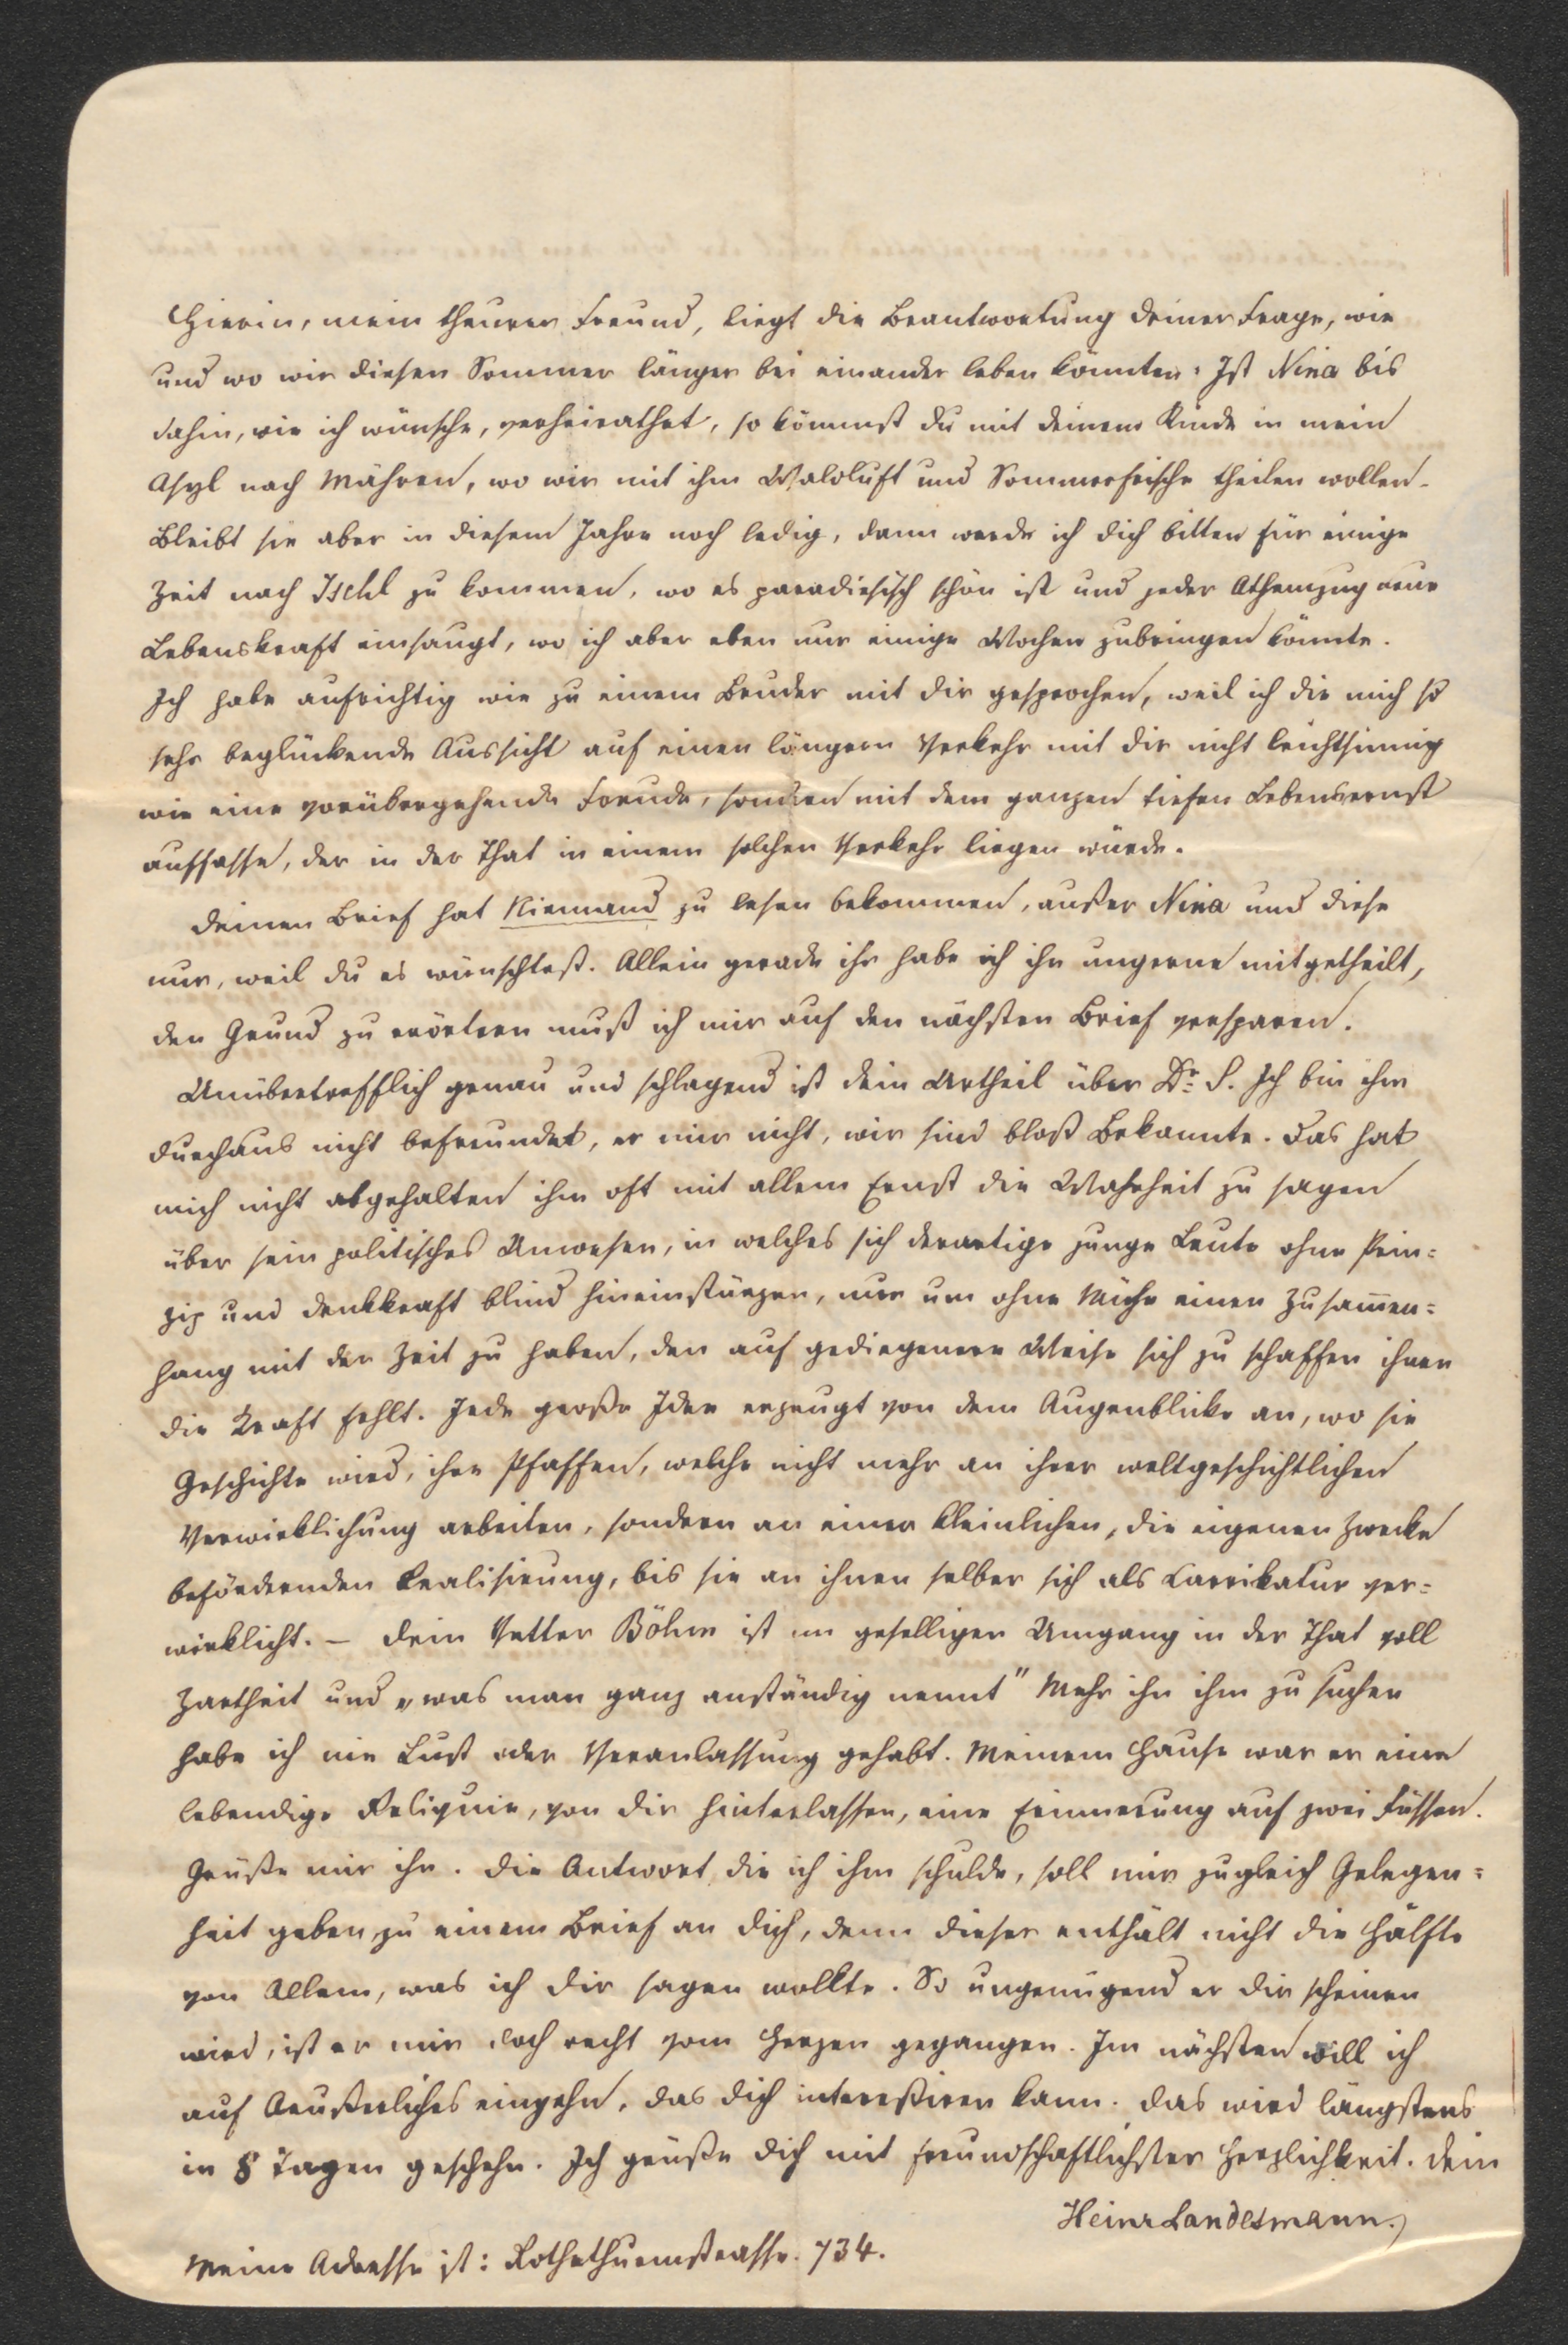 Hierin, mein theurer Freund, liegt die Beantwortung deiner Frage, wie
und wo wir diesen Sommer länger bei einander leben könnten: Ist Nina bis
dahin, wie ich wünsche, verheirathet, so kömmst du mit deinem Kinde in mein
Asyl nach Mähren, wo wir mit ihm Waldluft und Sommerfrische theilen wollen.
Bleibt sie aber in diesem Jahre noch ledig, dann werde ich dich bitten für einige
Zeit nach Ischl zu kommen, wo es paradiesisch schön ist und jeder Athemzug neue
Lebenskraft einsaugt, wo ich aber eben nur einige Wochen zubringen könnte.
Ich habe aufrichtig wie zu einem Bruder mit dir gesprochen, weil ich die mich so
sehr beglückende Aussicht auf einen längern Verkehr mit dir nicht leichtsinnig
wie eine vorübergehende Freude, sondern mit dem ganzen tiefen Lebensernst
auffasse, der in der That in einem solchen Verkehr liegen würde.
Deinen Brief hat Niemand zu lesen bekommen, außer Nina und diese
nur, weil du es wünschtest. Allein gerade ihr habe ich ihn ungerne mitgetheilt,
den Grund zu erörtern muß ich mir auf den nächsten Brief versparen.
Unübertrefflich genau und schlagend ist dein Urtheil über Dr. S. Ich bin ihm
durchaus nicht befreundet, er mir nicht, wir sind bloß Bekannte. Das hat
mich nicht abgehalten ihm oft mit allem Ernst die Wahrheit zu sagen
über sein politisches Unwesen, in welches sich derartige junge Leute ohne Prin=
zip und Denkkraft blind hineinstürzen, nur um ohne Mühe einen Zusam̄en=
hang mit der Zeit zu haben, den auf gediegenere Weise sich zu schaffen ihnen
die Kraft fehlt. Jede große Idee erzeugt von dem Augenblicke an, wo sie
Geschichte wird, ihre Pfaffen, welche nicht mehr an ihrer weltgeschichtlichen
Verwirklichung arbeiten, sondern an einer kleinlichen, die eigenen Zwecke
befördernden Realisirung, bis sie an ihnen selber sich als Carrikatur ver=
wirklicht. – Dein Vetter Böhm ist im geselligen Umgang in der That voll
Zartheit und „was man ganz anständig nennt" Mehr ihn ihm zu suchen
habe ich nie Lust oder Veranlassung gehabt. Meinem Hause war er eine
lebendige Reliquie, von dir hinterlassen, eine Erinnerung auf zwei Füssen.
Grüße mir ihn. Die Antwort, die ich ihm schulde, soll mir zugleich Gelegen=
heit geben, zu einem Brief an dich, denn dieser enthält nicht die Hälfte
von Allem, was ich dir sagen wollte. So ungenügend er dir scheinen
wird, ist er mir doch recht vom Herzen gegangen. Im nächsten will ich
auf Aeußerliches eingehn, das dich interessiren kann. Das wird längstens
in 8 Tagen geschehn. Ich grüße dich mit freundschaftlichster Herzlichkeit. Dein
Heinr Landesmann.
Meine Adresse ist: Rothethurmstrasse 734.